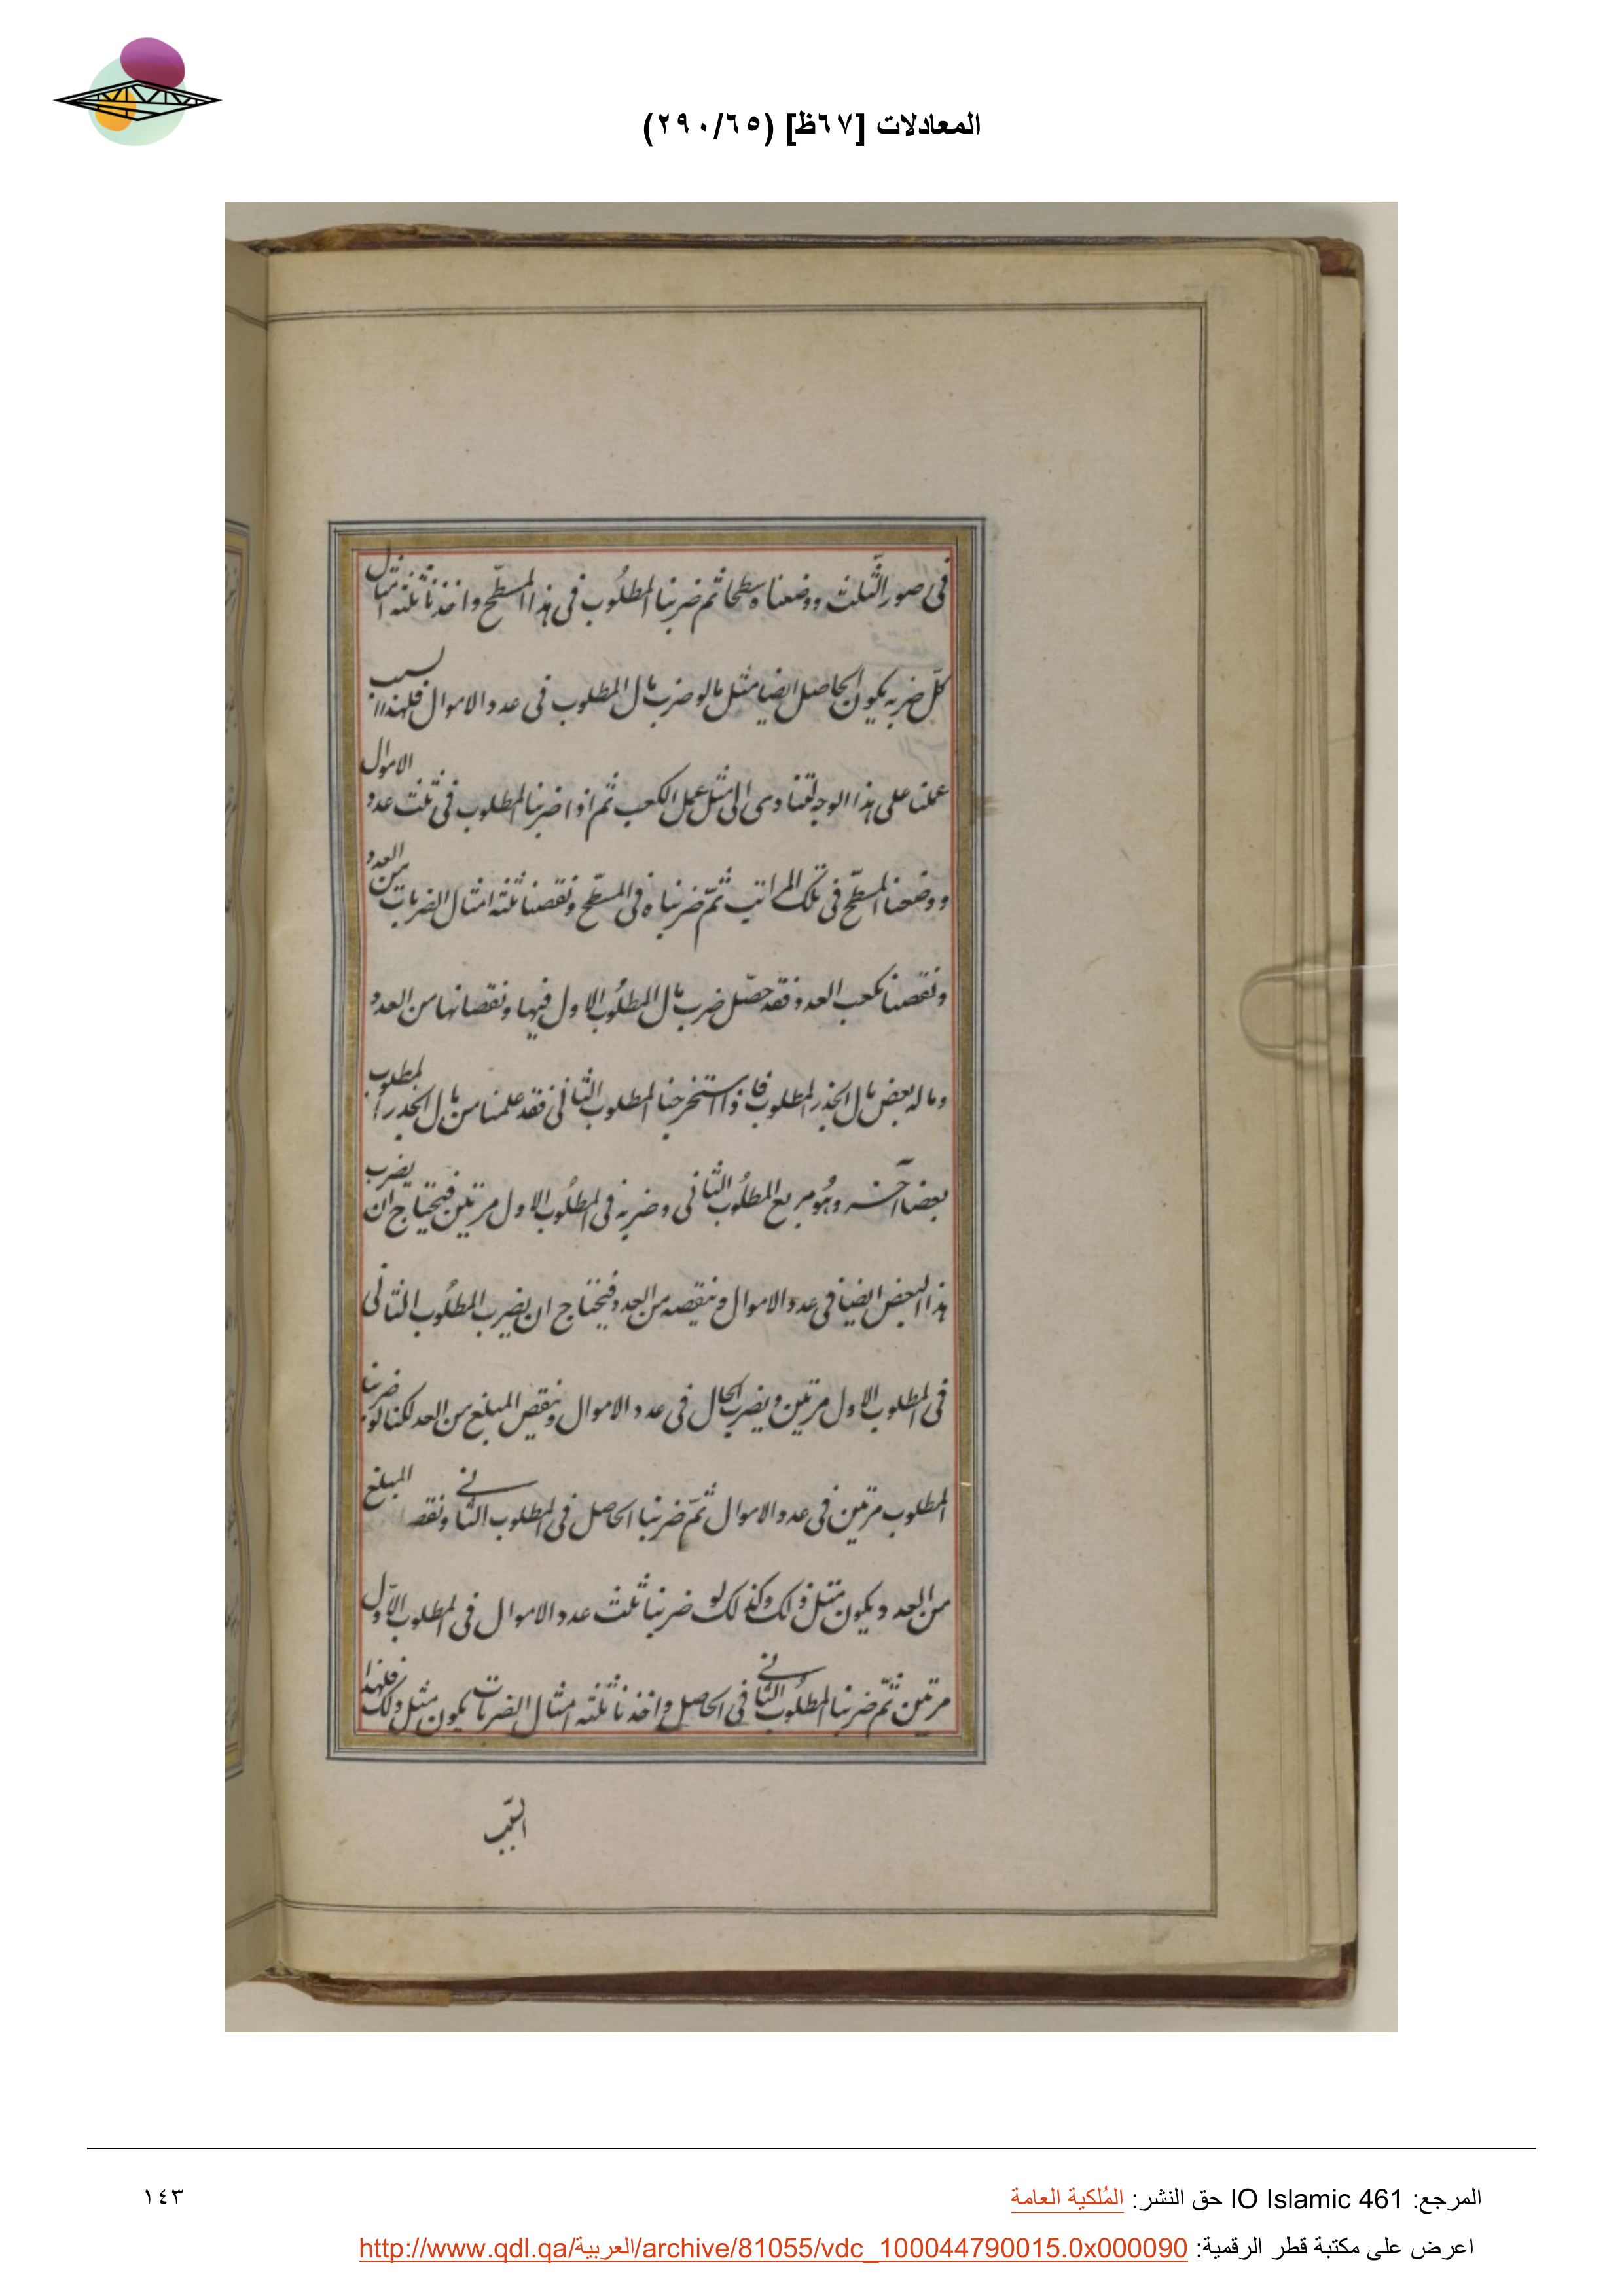 المعادلات [٦٧ظ] (٢٩٠/٦٥)
فى صور الثّلث ووضعناه سطحا ثم ضربنا المطلُوب فى هذا المسطّح واخذنا ثلثة امثال
كلّ ضربه يكون الحاصل ايضا مثل مالو ضرب مال المطلوب فى عدد الاموال فلهذا السبب
عملنا على هذا الوجه لتتادى الى مثل عمل الكعب ثم اذا ضربنا المطلوب فى ثلث عدد الاموال
ووضعنا المسطّح فى تلك المراتب ثمّ ضربناه فى المسطّح ونقصنا ثلثة امثال الضربات من العدد
ونقصنا مكعب العدد فقد حصّل ضرب مال المطلُوب الاول فيها ونقصانها من العدد
وماله بعض مال الجذر المطلوب فاذا استخرجنا المطلوب الثانى فقد علمنا من مال الجذر المطلوب
بعضا آخر وهُو مربع المطلُوب الثانى وضربه فى المطلُوب الاول مرتين فيحتاج ان يضرب
هذا البعض ايضا فى عدد الاموال وينقصه من العدد فيحتاج ان يضرب المطلُوب الثانى
فى المطلوب الاول مرتين ويضرب الحال فى عدد الاموال وينقص المبلغ من العدد لكنا لو ضربنا
المطلوب مرتين فى عدد الاموال ثمّ ضربنا الحاصل فى المطلوب الثانى ونقصنا المبلغ
من العدد ويكون مثل ذلك وكذلك لو ضربنا ثلث عدد الاموال فى المطلوب الاوّل
مرتين ثمّ ضربنا المطلُوب الثانى فى الحاصل واخذنا ثلثة امثال الضربات يكون مثل ذلك فلهذا
السّبب
المرجع: IO Islamic 461 حق النشر: المُلكية العامة
١٤٣
اعرض على مكتبة قطر الرقمية: http://www.qdl.qa/العربية/archive/81055/vdc_100044790015.0x000090